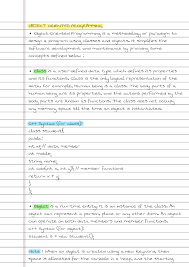 OBJECT ORIENTED PROGRAMMING
• Object Oriented Programming is a methodology or paradigm to
design a program using classes and objects. It simplifies the
software development and maintenance by providing some
concepts defined below :
• Class is a user-defined data type which defines its properties
and its functions. Class is the only logical representation of the
data. For example, Human being is a class. The body parts of a
human being are its properties, and the actions performed by the
body parts are known as functions. The class does not occupy
any memory space till the time an object is instantiated.
C++ Syntax (for class) :
class student{
public:
int id; // data member
int mobile;
string name;
int add(int x, int y){ // member functions
return x + y;
}
};
• Object is a run-time entity. It is an instance of the class. An
object can represent a person, place or any other item. An object
can operate on both data members and member functions.
C++ Syntax (for object) :
student s = new student();
Note : When an object is created using a new keyword, then
space is allocated for the variable in a heap, and the starting